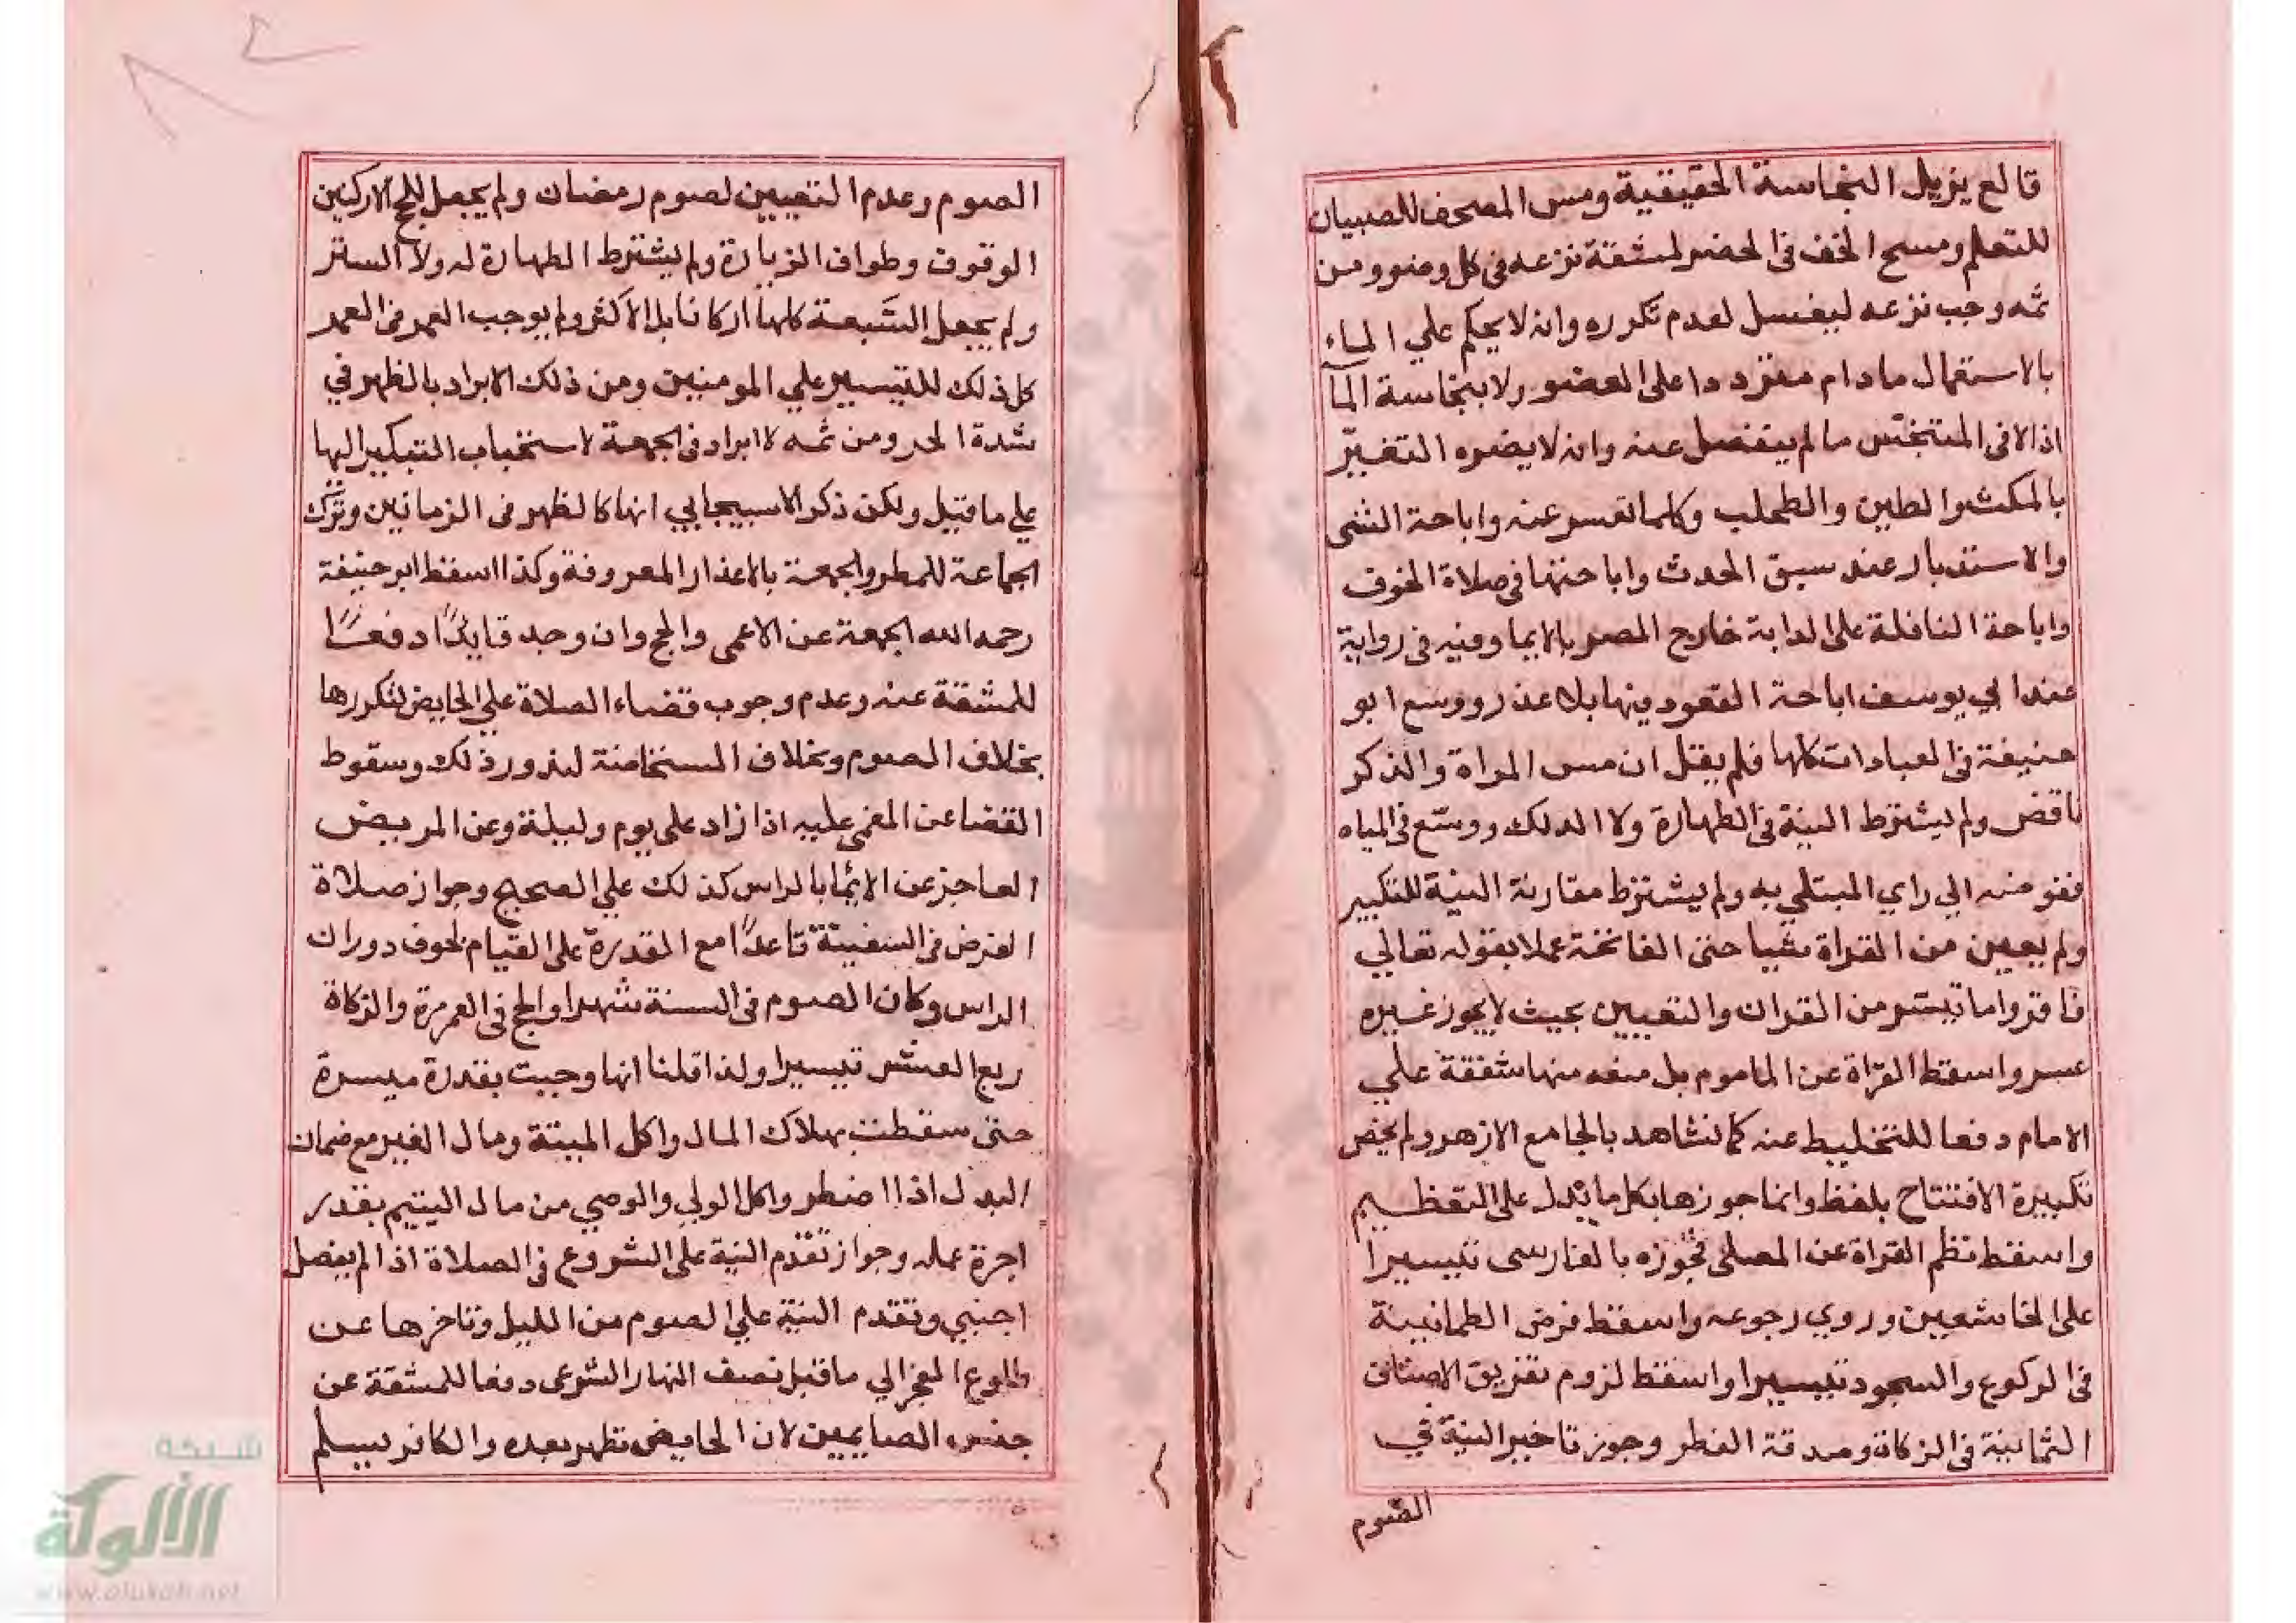 قالع يزيل النجاسة الحقيقية ومس المصحف للصبيان
للتعلم ومسح الخف في الحضر لمشقة نزعه في كل وضوء ومن
ثمه وجب نزعه ليغسل لعدم تكرره وانه لا يحكم علي الماء
بالاستعمال مادام مترددا على العضو ولا بنجاسة الما
اذا لاقى المتنجّس ما لم ينفصل عنه وانه لا يضره التغيّر
بالمكث والطين والطحلب وكلما تعسر عنه واباحة المشى
والاستدبار عند سبق الحدث واباحتها في صلاة الخوف
واباحة النافلة على الدابة خارج المصر بالايما وفيه في رواية
عند ابي يوسف اباحة القعود فيها بلا عذر ووسع ابو
حنيفة في العبادات كلها فلم يقل ان مس المراة والذكر
ناقض ولم يشترط النية في الطهارة ولا الدلك ووسّع في المياه
ففوضه الي راي المبتلي به ولم يشترط مقارنة النية للتكبير
ولم يعين من القراة شيا حتى الفاتحة عملا بقوله تعالي
فاقروا ما تيسّر من القران والتعيين بحيث لا يجوز غيره
عسر واسقط القرّاة عن الماموم بل منعه منها شفقة علي
الامام دفعا للتخليط عنه كما نشاهد بالجامع الازهر ولم يخص
تكبيرة الافتتاح بلفظ وانما جوزها بكل ما يدل على التعظيم
واسقط نظم القراة عن المصلى فجوّزه بالفارسى تيسيرا
على الخاشعين وروي رجوعه واسقط فرض الطمانينة
في الركوع والسجود تيسيرا واسقط لزوم تفريق الاصناف
الثمانية في الزكاة وصدقة الفطر وجوز تاخير النية في
الصّوم
الصوم وعدم التعيين لصوم رمضان ولم يجعل للحج الا ركنين
الوقوف وطواف الزيارة ولم يشترط الطهارة له ولا الستر
ولم يجعل السّبعة كلها اركانا بل الاكثر ولم يوجب العمرة في العمر
كل ذلك للتيسير علي المومنين ومن ذلك الابراد بالظهر في
شدة الحر ومن ثمه لا ابراد في الجمعة لاستحباب التبكير اليها
علي ما قيل ولكن ذكر الاسبيجابي انها كالظهر في الزمانين وترك
الجماعة للمطر والجمعة بالاعذار المعروفة وكذا اسقط ابو حنيفة
رحمه الله الجمعة عن الاعمى والحج وان وجد قايدًا دفعًا
للمشقة عنه وعدم وجوب قضاء الصلاة علي الحايض لتكررها
بخلاف الصوم وبخلاف المستحاضة لندور ذلك وسقوط
القضا عن المغمى عليه اذا زاد على يوم وليلة وعن المريض
العاجز عن الايما بالراس كذلك علي الصحيح وجواز صلاة
الفرض في السفينة قاعدًا مع القدرة على القيام لخوف دوران
الراس وكان الصوم في السنة شهرا والحج في العمر مرة والزكاة
ربع العشر تيسيرا ولذا قلنا انها وجبت بقدرة ميسرة
حتى سقطت بهلاك المال واكل الميتة ومال الغير مع ضمان
البدل اذا اضطر واكل الولي والوصي من مال اليتيم بقدر
اجرة عمله وجواز تقدم النية على الشروع في الصلاة اذا لم يفصل
اجنبي وتقدم النية علي الصوم من الليل وتاخرها عن
طلوع الفجر الي ما قبل نصف النهار الشرعى دفعا للمشقة عن
جنس الصايمين لان الحايض تطهر بعده والكافر يسلم
شبكة
الألوكة
www.alukah.net